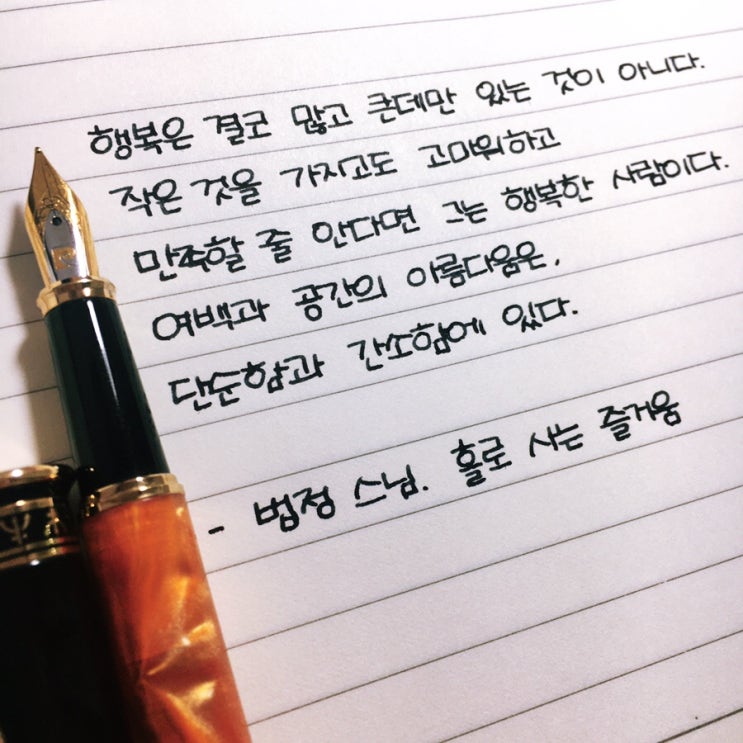 행복은 결코 많고 큰데만 있는 것이 아니다.
작은 것을 가지고도 고마워하고
만족할 줄 안다면 그는 행복한 사람이다.
여백과 공간의 아름다움은,
단순함과 간소함에 있다.
- 법정 스님. 홀로 사는 즐거움